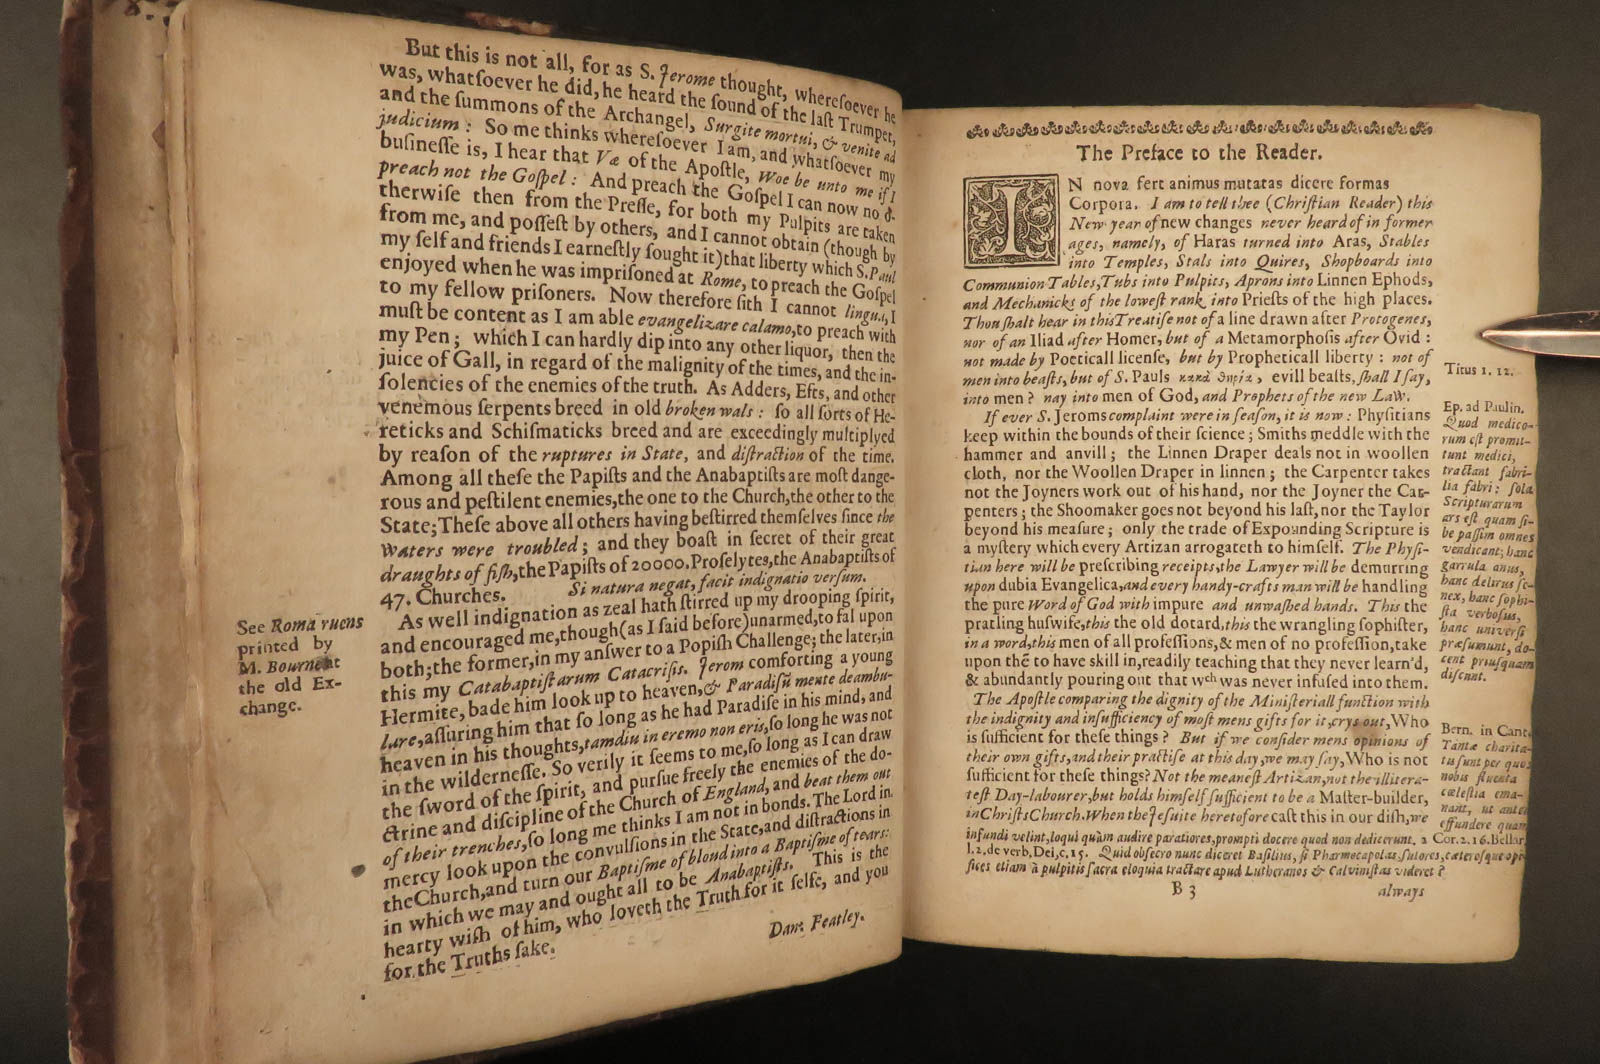 But this is not all, for as S. Jerome thought, wheresoever he
was, whatsoever he did, he heard the sound of the last Trumpet,
and the summons of the Archangel, Surgite mortui, & venite ad
judicium: So me thinks wheresoever I am, and whatsoever my
businesse is, I hear that Væ of the Apostle, Woe be unto me if I
preach not the Gospel: And preach the Gospel I can now no o-
therwise then from the Presse, for both my Pulpits are taken
from me, and possest by others, and I cannot obtain (though by
my self and friends I earnestly sought it) that liberty which S. Paul
enjoyed when he was imprisoned at Rome, to preach the Gospel
to my fellow prisoners. Now therefore sith I cannot lingua, I
must be content as I am able evangelizare calamo, to preach with
my Pen; which I can hardly dip into any other liquor, then the
juice of Gall, in regard of the malignity of the times, and the in-
solencies of the enemies of the truth. As Adders, Efts, and other
venemous serpents breed in old broken wals: so all sorts of He-
reticks and Schismaticks breed and are exceedingly multiplyed
by reason of the ruptures in State, and distraction of the time.
Among all these the Papists and the Anabaptists are most dange-
rous and pestilent enemies, the one to the Church, the other to the
State; These above all others having bestirred themselves since the
Waters were troubled; and they boast in secret of their great
draughts of fish, the Papists of 20000. Proselytes, the Anabaptists of
47. Churches. Si natura negat, facit indignatio versum.
As well indignation as zeal hath stirred up my drooping spirit,
and encouraged me, though (as I said before) unarmed, to fal upon
both; the former, in my answer to a Popish Challenge; the later, in
this my Catabaptistarum Catacrisis. Jerom comforting a young
Hermite, bade him look up to heaven, & Paradisū mente deambu-
lare, assuring him that so long as he had Paradise in his mind, and
heaven in his thoughts, tamdiu in eremo non eris, so long he was not
in the wildernesse. So verily it seems to me, so long as I can draw
the sword of the spirit, and pursue freely the enemies of the do-
ctrine and discipline of the Church of England, and beat them out
of their trenches, so long me thinks I am not in bonds. The Lord in
mercy look upon the convulsions in the State, and distractions in
the Church, and turn our Baptisme of bloud into a Baptisme of tears:
in which we may and ought all to be Anabaptists. This is the
hearty wish of him, who loveth the Truth for it selfe, and you
for the Truths sake.
Dan. Featley.
See Roma ruens
printed by
M. Bourne at
the old Ex-
change.
The Preface to the Reader.
IN nova fert animus mutatas dicere formas
Corpora. I am to tell thee (Christian Reader) this
New year of new changes never heard of in former
ages, namely, of Haras turned into Aras, Stables
into Temples, Stals into Quires, Shopboards into
Communion Tables, Tubs into Pulpits, Aprons into Linnen Ephods,
and Mechanicks of the lowest rank into Priests of the high places.
Thou shalt hear in this Treatise not of a line drawn after Protogenes,
nor of an Iliad after Homer, but of a Metamorphosis after Ovid:
not made by Poeticall license, but by Propheticall liberty: not of
men into beasts, but of S. Pauls κακὰ θηρία, evill beasts, shall I say,
into men? nay into men of God, and Prophets of the new Law.
If ever S. Jeroms complaint were in season, it is now: Physitians
keep within the bounds of their science; Smiths meddle with the
hammer and anvill; the Linnen Draper deals not in woollen
cloth, nor the Woollen Draper in linnen; the Carpenter takes
not the Joyners work out of his hand, nor the Joyner the Car-
penters; the Shoomaker goes not beyond his last, nor the Taylor
beyond his measure; only the trade of Expounding Scripture is
a mystery which every Artizan arrogateth to himself. The Physi-
tian here will be prescribing receipts, the Lawyer will be demurring
upon dubia Evangelica, and every handy-crafts man will be handling
the pure Word of God with impure and unwashed hands. This the
pratling huswife, this the old dotard, this the wrangling sophister,
in a word, this men of all professions, & men of no profession, take
upon thē to have skill in, readily teaching that they never learn'd,
& abundantly pouring out that wch was never infused into them.
The Apostle comparing the dignity of the Ministeriall function with
the indignity and insufficiency of most mens gifts for it, crys out, Who
is sufficient for these things? But if we consider mens opinions of
their own gifts, and their practise at this day, we may say, Who is not
sufficient for these things? Not the meanest Artizan, not the illitera-
test Day-labourer, but holds himself sufficient to be a Master-builder,
in Christs Church. When the Jesuite heretofore cast this in our dish, we
infundi velint, loqui quàm audire paratiores, prompti docere quod non dedicerunt. 2 Cor. 2. 16. Bellar.
l. 2. de verb. Dei, c. 15. Quid obsecro nunc diceret Basilius, si Pharmocapolas, sutores, cæterosque opi-
fices etiam à pulpitis sacra eloquia tractare apud Lutheranos & Calvinistas videret?
B 3 always
Titus 1. 12.
Ep. ad Paulin.
Quod medico-
rum est promit-
tunt medici,
tractant fabri-
lia fabri: sola
Scripturarum
ars est quam si-
be passim omnes
vendicant; hanc
garrula anus,
hanc delirus se-
nex, hanc sophi-
sta verbosus,
hanc universi
præsumunt, do-
cent priusquam
discunt.
Bern. in Cant.
Tantæ charita-
tis sunt per quos
nobis fluenta
cælestia ema-
nant, ut ante
effundere quam